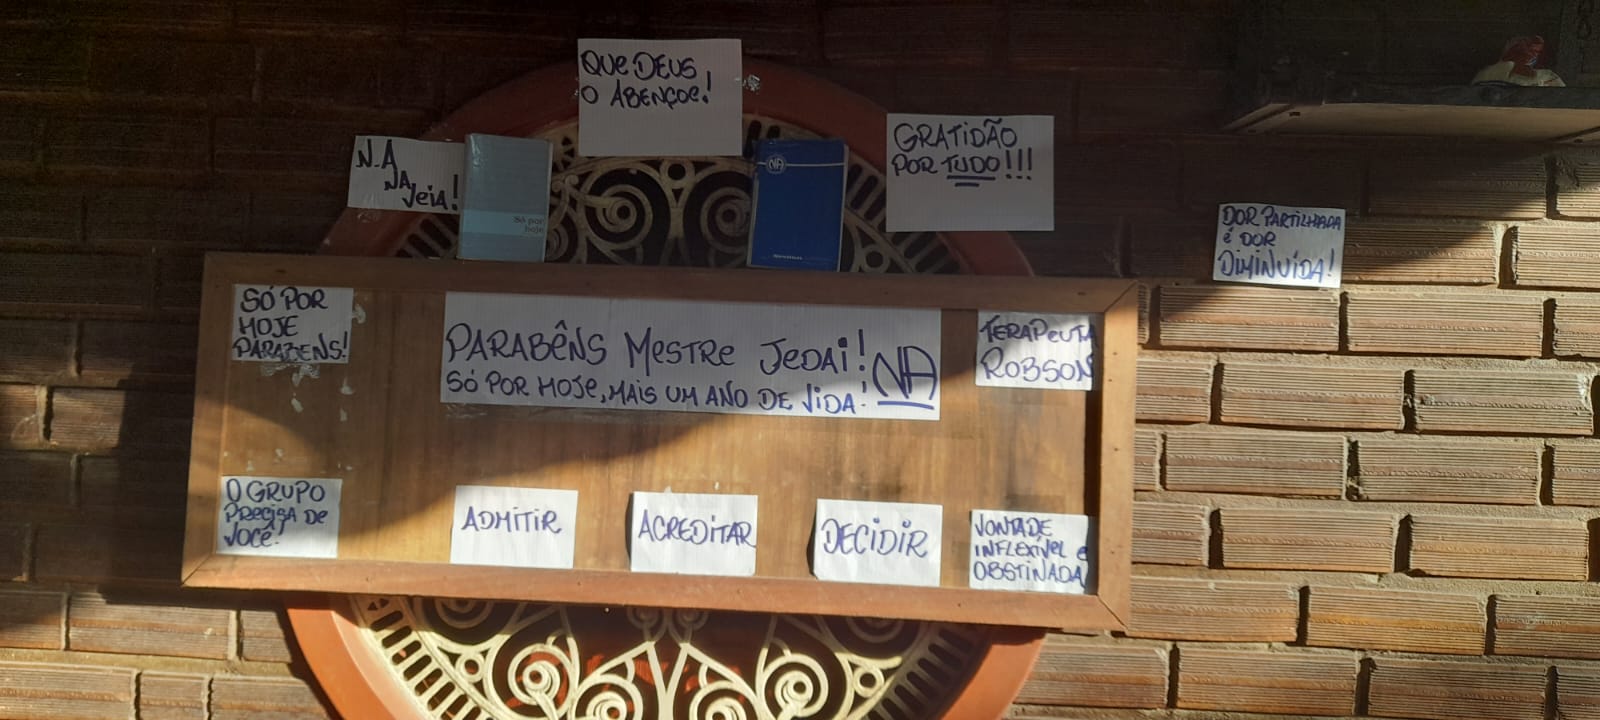 QUE DEUS
O ABENÇOE!
N.A
NA
VEIA!
Só por
hoje
NA
GRATIDÃO
POR TUDO!!!
DOR PARTILHADA
É DOR
DIMINUÍDA!
SÓ POR
HOJE
PARABENS!
PARABÊNS MESTRE JEDAI!
SÓ POR HOJE, MAIS UM ANO DE VIDA!
NA
TERAPEUTA
ROBSON
O GRUPO
PRECISA DE
VOCÊ!
ADMITIR
ACREDITAR
DECIDIR
VONTADE
INFLEXÍVEL E
OBSTINADA